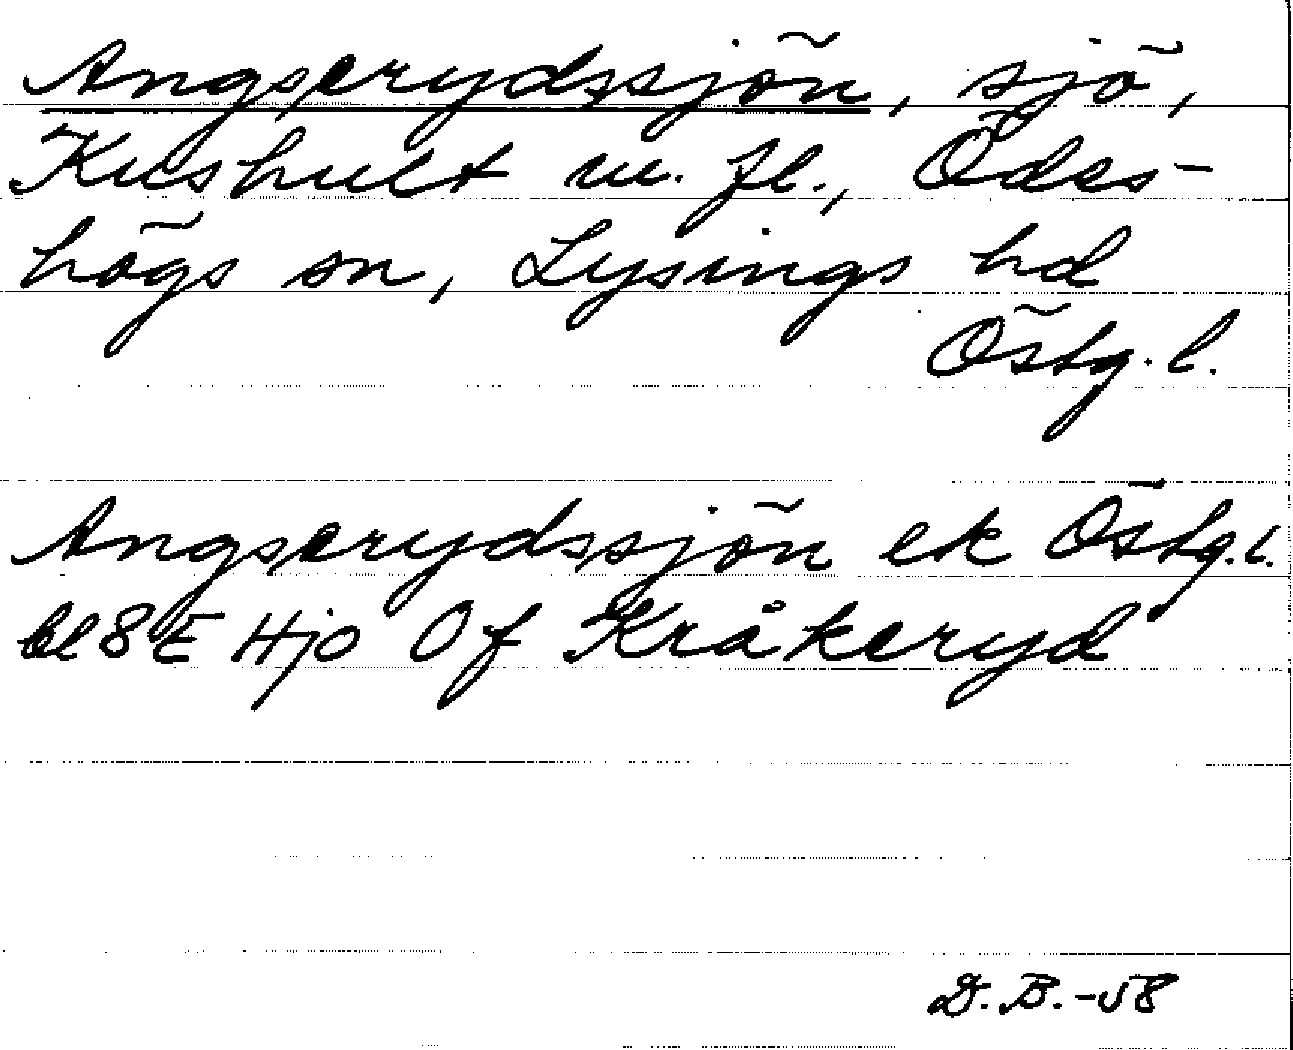 Angserydssjön, sjö,
Kushult m. fl., Ödes-
högs sn, Lysings hd
Östg. l.
Angserydssjön ek Östg. l.
bl 8 E Hjo Of Kråkeryd
D. B. -58